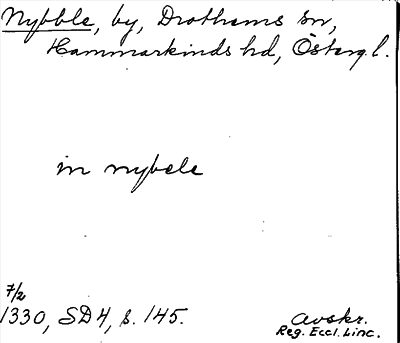 Nybble, by, Drothems sn,
Hammarkinds hd, Österg.l.
in nybele
7/2
1330, SD4, s. 145.
Avskr.
Reg. Eccl. Linc.